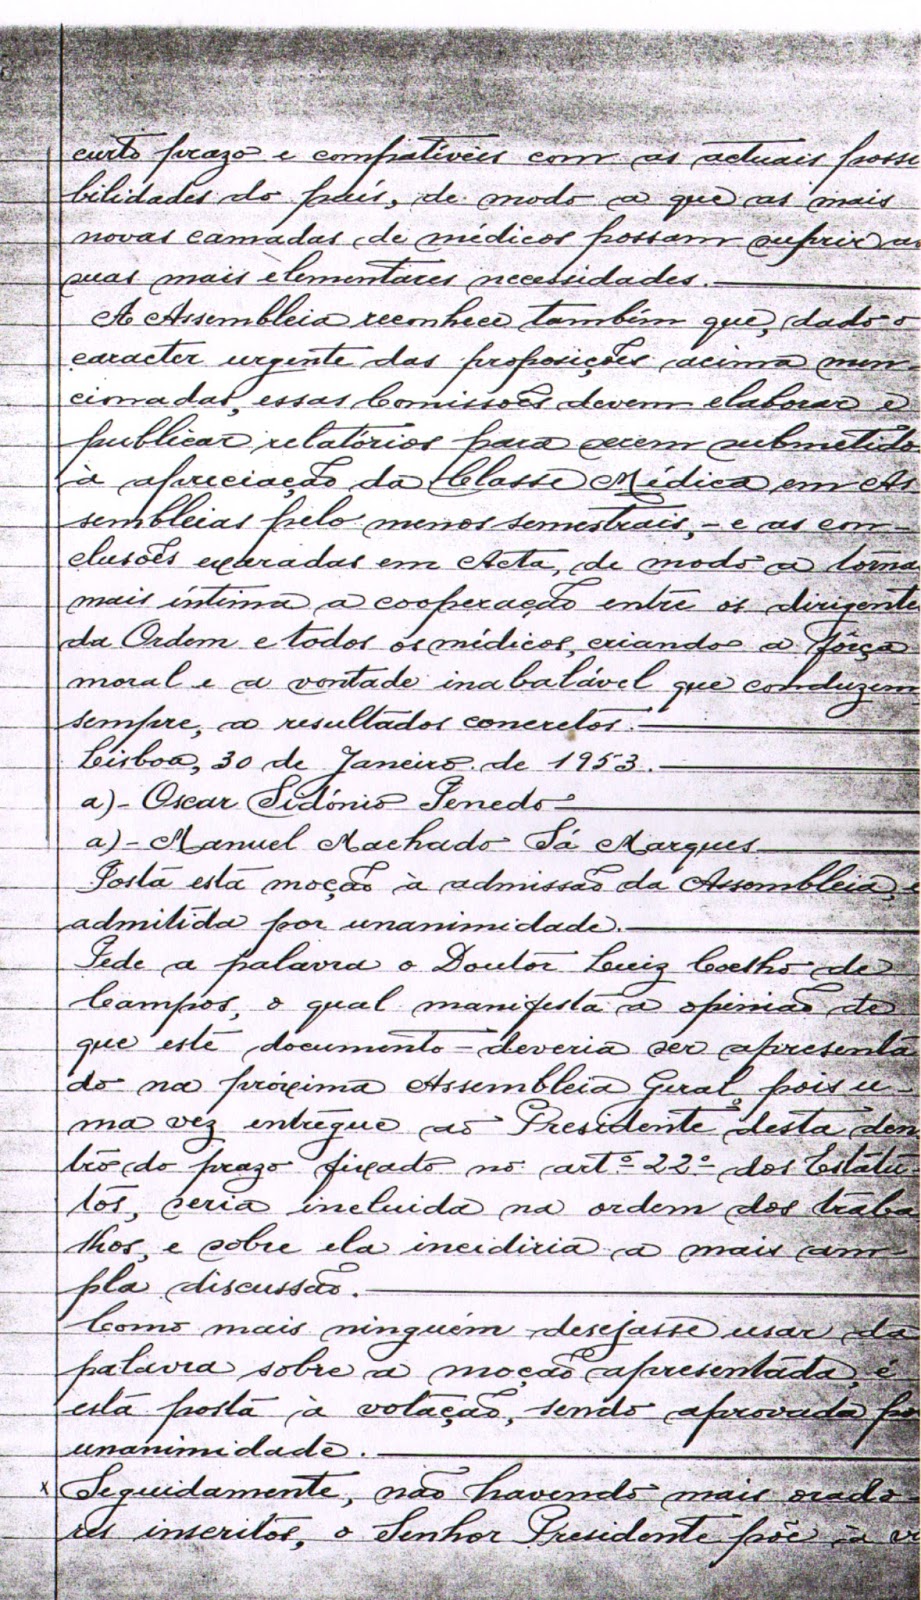 curto prazo e compatíveis com as actuais possi
bilidades do país, de modo a que as mais
novas camadas de médicos possam suprir as
suas mais elementares necessidades.
A Assembleia reconhece também que, dado o
caracter urgente das proposições acima men-
cionadas, essas Comissões devem elaborar e
publicar relatórios para serem submetido
à apreciação da Classe Médica em As
sembleias pelo menos semestrais, - e as con-
clusões exaradas em Acta, de modo a torna
mais íntima a cooperação entre os dirigente
da Ordem e todos os médicos, criando a fôrça
moral e a vontade inabalável que conduzem
sempre, a resultados concretos.
Lisboa, 30 de Janeiro de 1953.
a) - Oscar Sidónio Penedo
a) - Manuel Machado Sá Marques
Posta esta moção à admissão da Assembleia, é
admitida por unanimidade.
Pede a palavra o Doutor Luiz Coelho de
Campos, o qual manifesta a opinião de
que este documento deveria ser apresenta
do na próxima Assembleia Geral, pois u-
ma vez entregue ao Presidente desta den
tro do prazo fixado no artº 22º dos Estatu
tos, seria incluida na ordem dos traba
lhos, e sobre ela incidiria a mais am
pla discussão.
Como mais ninguém desejasse usar da
palavra sobre a moção apresentada, é
esta posta à votação, sendo aprovada po
unanimidade.
x Seguidamente, não havendo mais orado
res inscritos, o Senhor Presidente põe à v